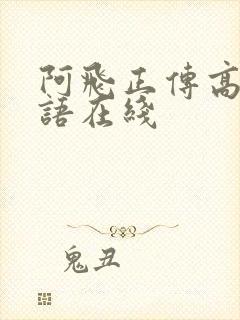 阿飛正傳高
語在綫
鬼丑